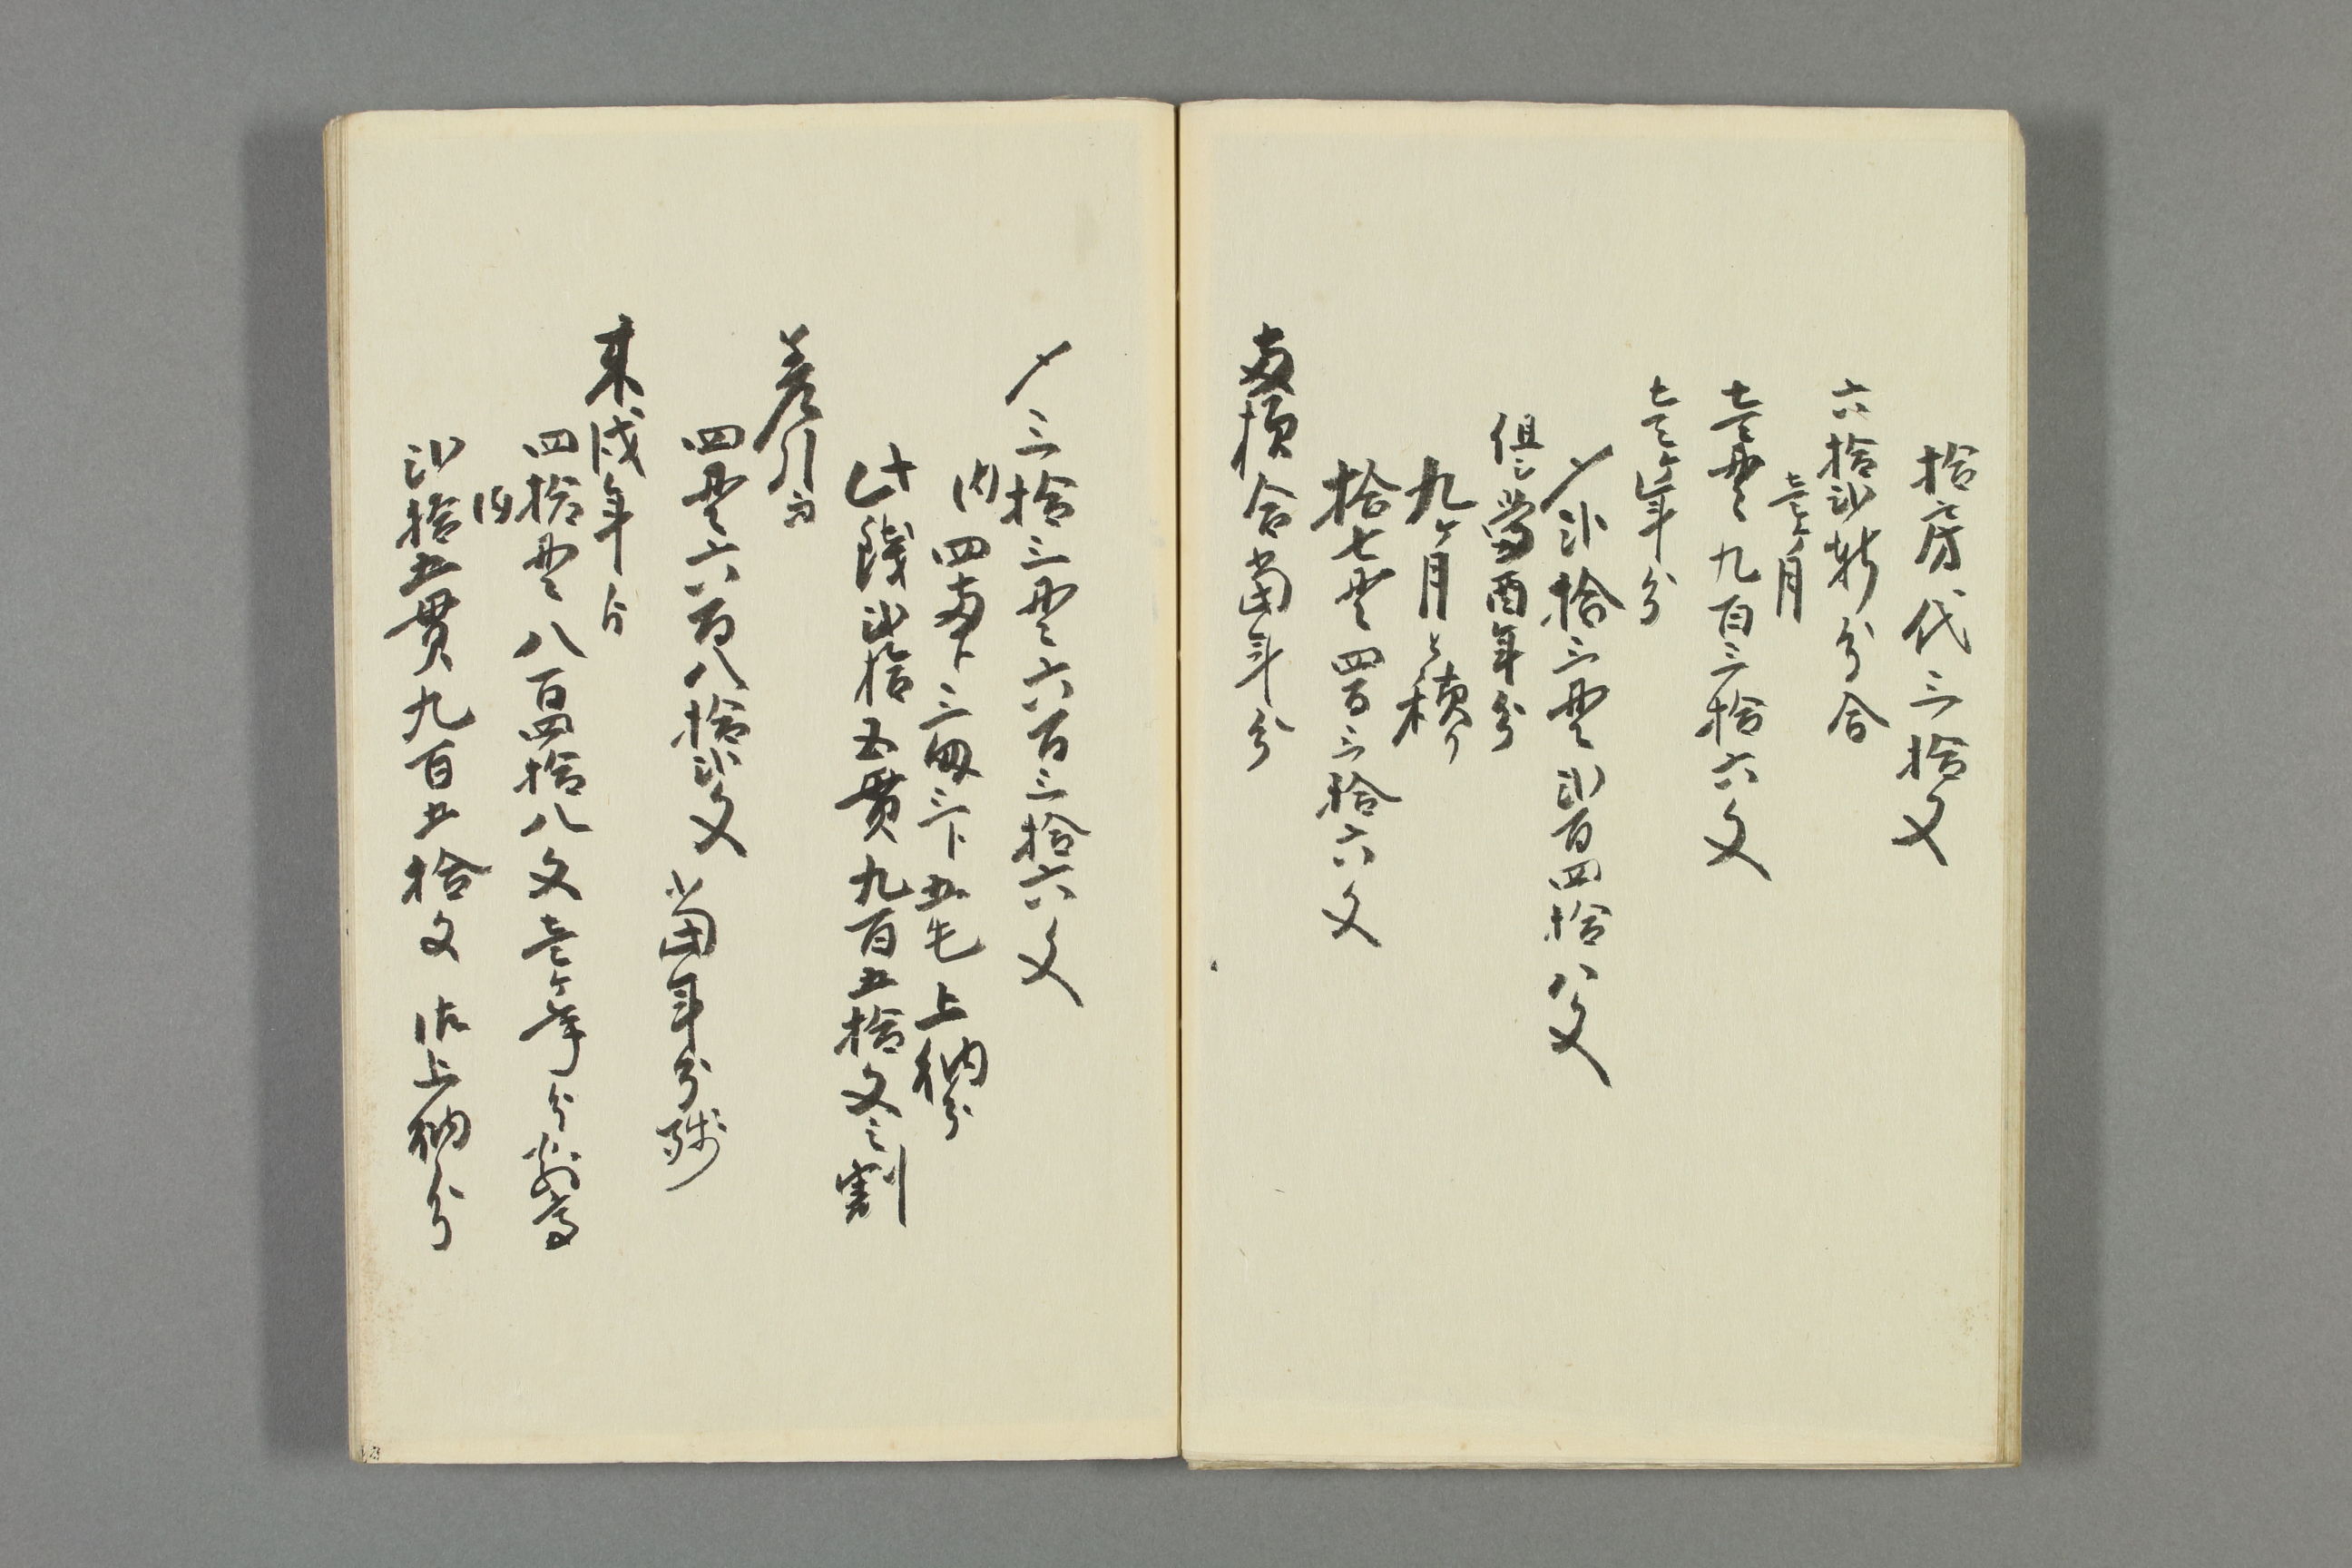 拾房代三拾文
六拾弐軒分合
壱ヶ月
壱貫九百三拾六文
壱ヶ年分
〆弐拾三貫弐百四拾八文
但シ当酉年分
九ヶ月之積り
拾七貫四百三拾六文
両損合当年分
〆三拾三貫六百三拾六文
内
四両ト三匁三分五毛上納分
此銭弐拾五貫九百五拾文之割
差引而
四貫六百八拾弐文 当年分残
来戌年ゟ
四拾貫八百四拾八文壱ヶ年分
内
弐拾五貫九百五拾文 上納分